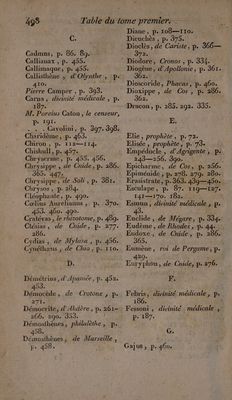 498 Table du tome premier.
C.
Cadmus, p. 86. 89.
Callianax, p. 455.
Callimaque, p. 455.
Callisthène, d'Olynthe, p.
410.
Pierre Camper, p. 393.
Carna, divinité médicale, p.
187.
M. Porcius Caton, le censeur,
p. 191.
. . . Cavolini, p. 397. 398.
Charidème, p. 463.
Chiron, p. 112—114.
Chishull, p. 457.
Chryserme, p. 455. 456.
Chrysippe, de Cnide, p. 286.
365. 447.
Chrysippe, de Soli, p. 381.
Chrysos, p. 284.
Cléophante, p. 490.
Cœlius Aurelianus, p. 370.
453. 460. 490.
Cratévas, le rhizotome, p. 489.
Ctésias, de Cnide, p. 277.
286.
Cydias, de Mylasa, p. 456.
Cynéthans, de Chos, p. 110.
D.
Démétrius, d'Apamée, p. 452.
453.
Démocède, de Crotone, p.
271.
Démocrite, d'Abdère, p. 261—
266. 290. 353.
Démosthènes, philalèthe, p.
458.
Démosthènes, de Marseille,
p. 458.
Diane, p. 108—110.
Dieuchès, p. 375.
Dioclès, de Cariste, p. 366—
372.
Diodore, Cronos, p. 334.
Diogène, d'Apollonie, p. 361.
362.
Dioscoride, Phacas, p. 460.
Dioxippe, de Cos, p. 286.
362.
Dracon, p. 285. 292. 335.
E.
Elie, prophète, p. 72.
Elisée, prophète, p. 73.
Empédocle, d'Agrigente, p.
243—256. 390.
Epicharme, de Cos, p. 256.
Epiménide, p. 278. 279. 280.
Erasistrate, p. 363. 439—450.
Esculape, p. 87. 119—127.
141—170. 182.
Esmun, divinité médicale, p.
45.
Euclide, de Mégare, p. 334.
Eudème, de Rhodes, p. 44.
Eudoxe, de Cnide, p. 286.
365.
Eumène, roi de Pergame, p.
429.
Euryphon, de Cnide, p. 276.
F.
Febris, divinité médicale, p.
186.
Fessoni, divinité médicale,
p. 187.
G.
Gajus, p. 460.